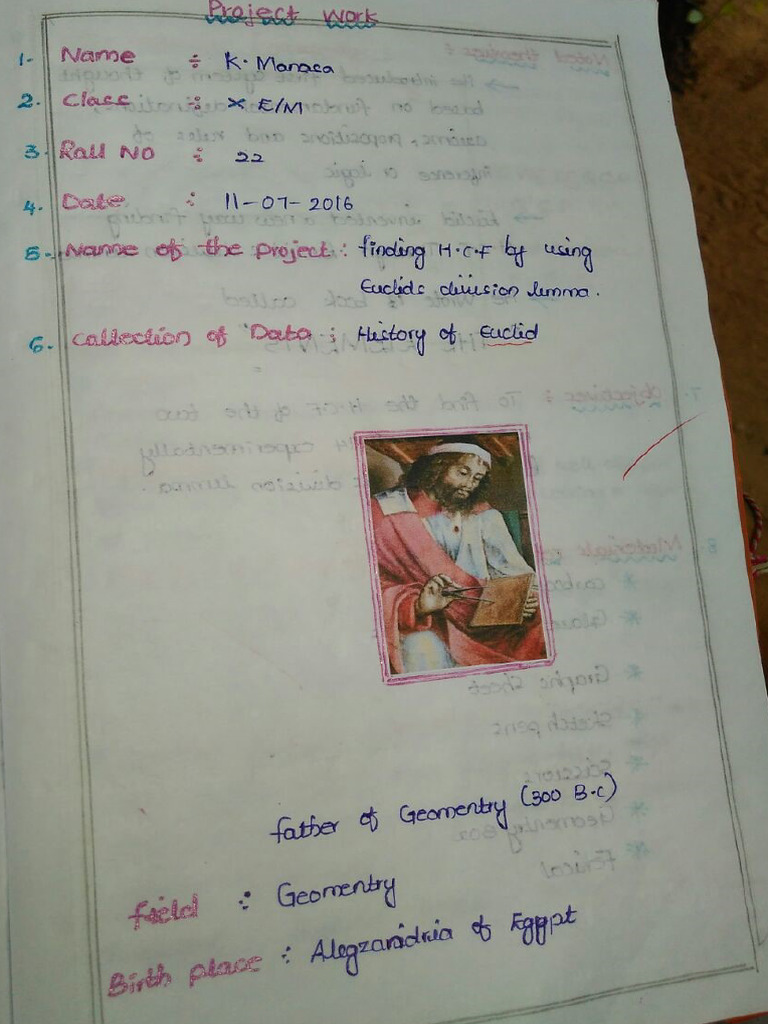 Project Work
1- Name : K. Manasa
2. Class : X E/M
3. Rall No : 22
4. Date : 11-07-2016
5. Name of the Project : finding H.C.F by using
Euclids division lemma.
6. Collection of Data : History of Euclid
father of Geomentry (300 B.C)
field : Geomentry
Birth place : Alegzanidria of Eggpt